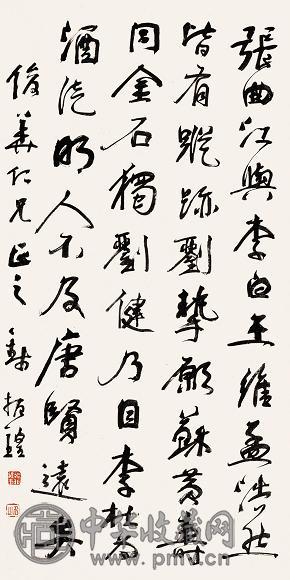 張曲江與李白王維孟浩然
皆有蹤跡劉摯願蘇黃壽
同金石獨劉健乃目李杜為
酒徒明人不及唐賢遠矣
俊華仁兄正之 錢振鍠
中华收藏网